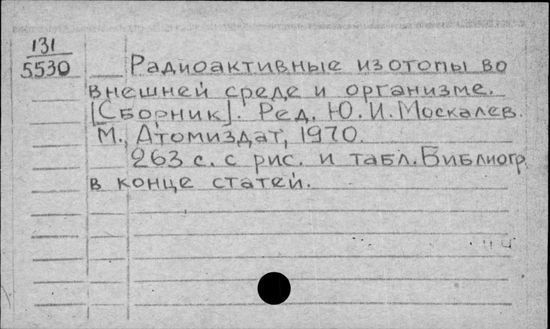 131
5530
Радиоактивные изотопы во
внешней среде и организме.
[Сборник]. Ред. Ю.И. Москалев.
М., Атомиздат, 1970.
263 с. с рис. и табл. Библиогр.
в конце статей.